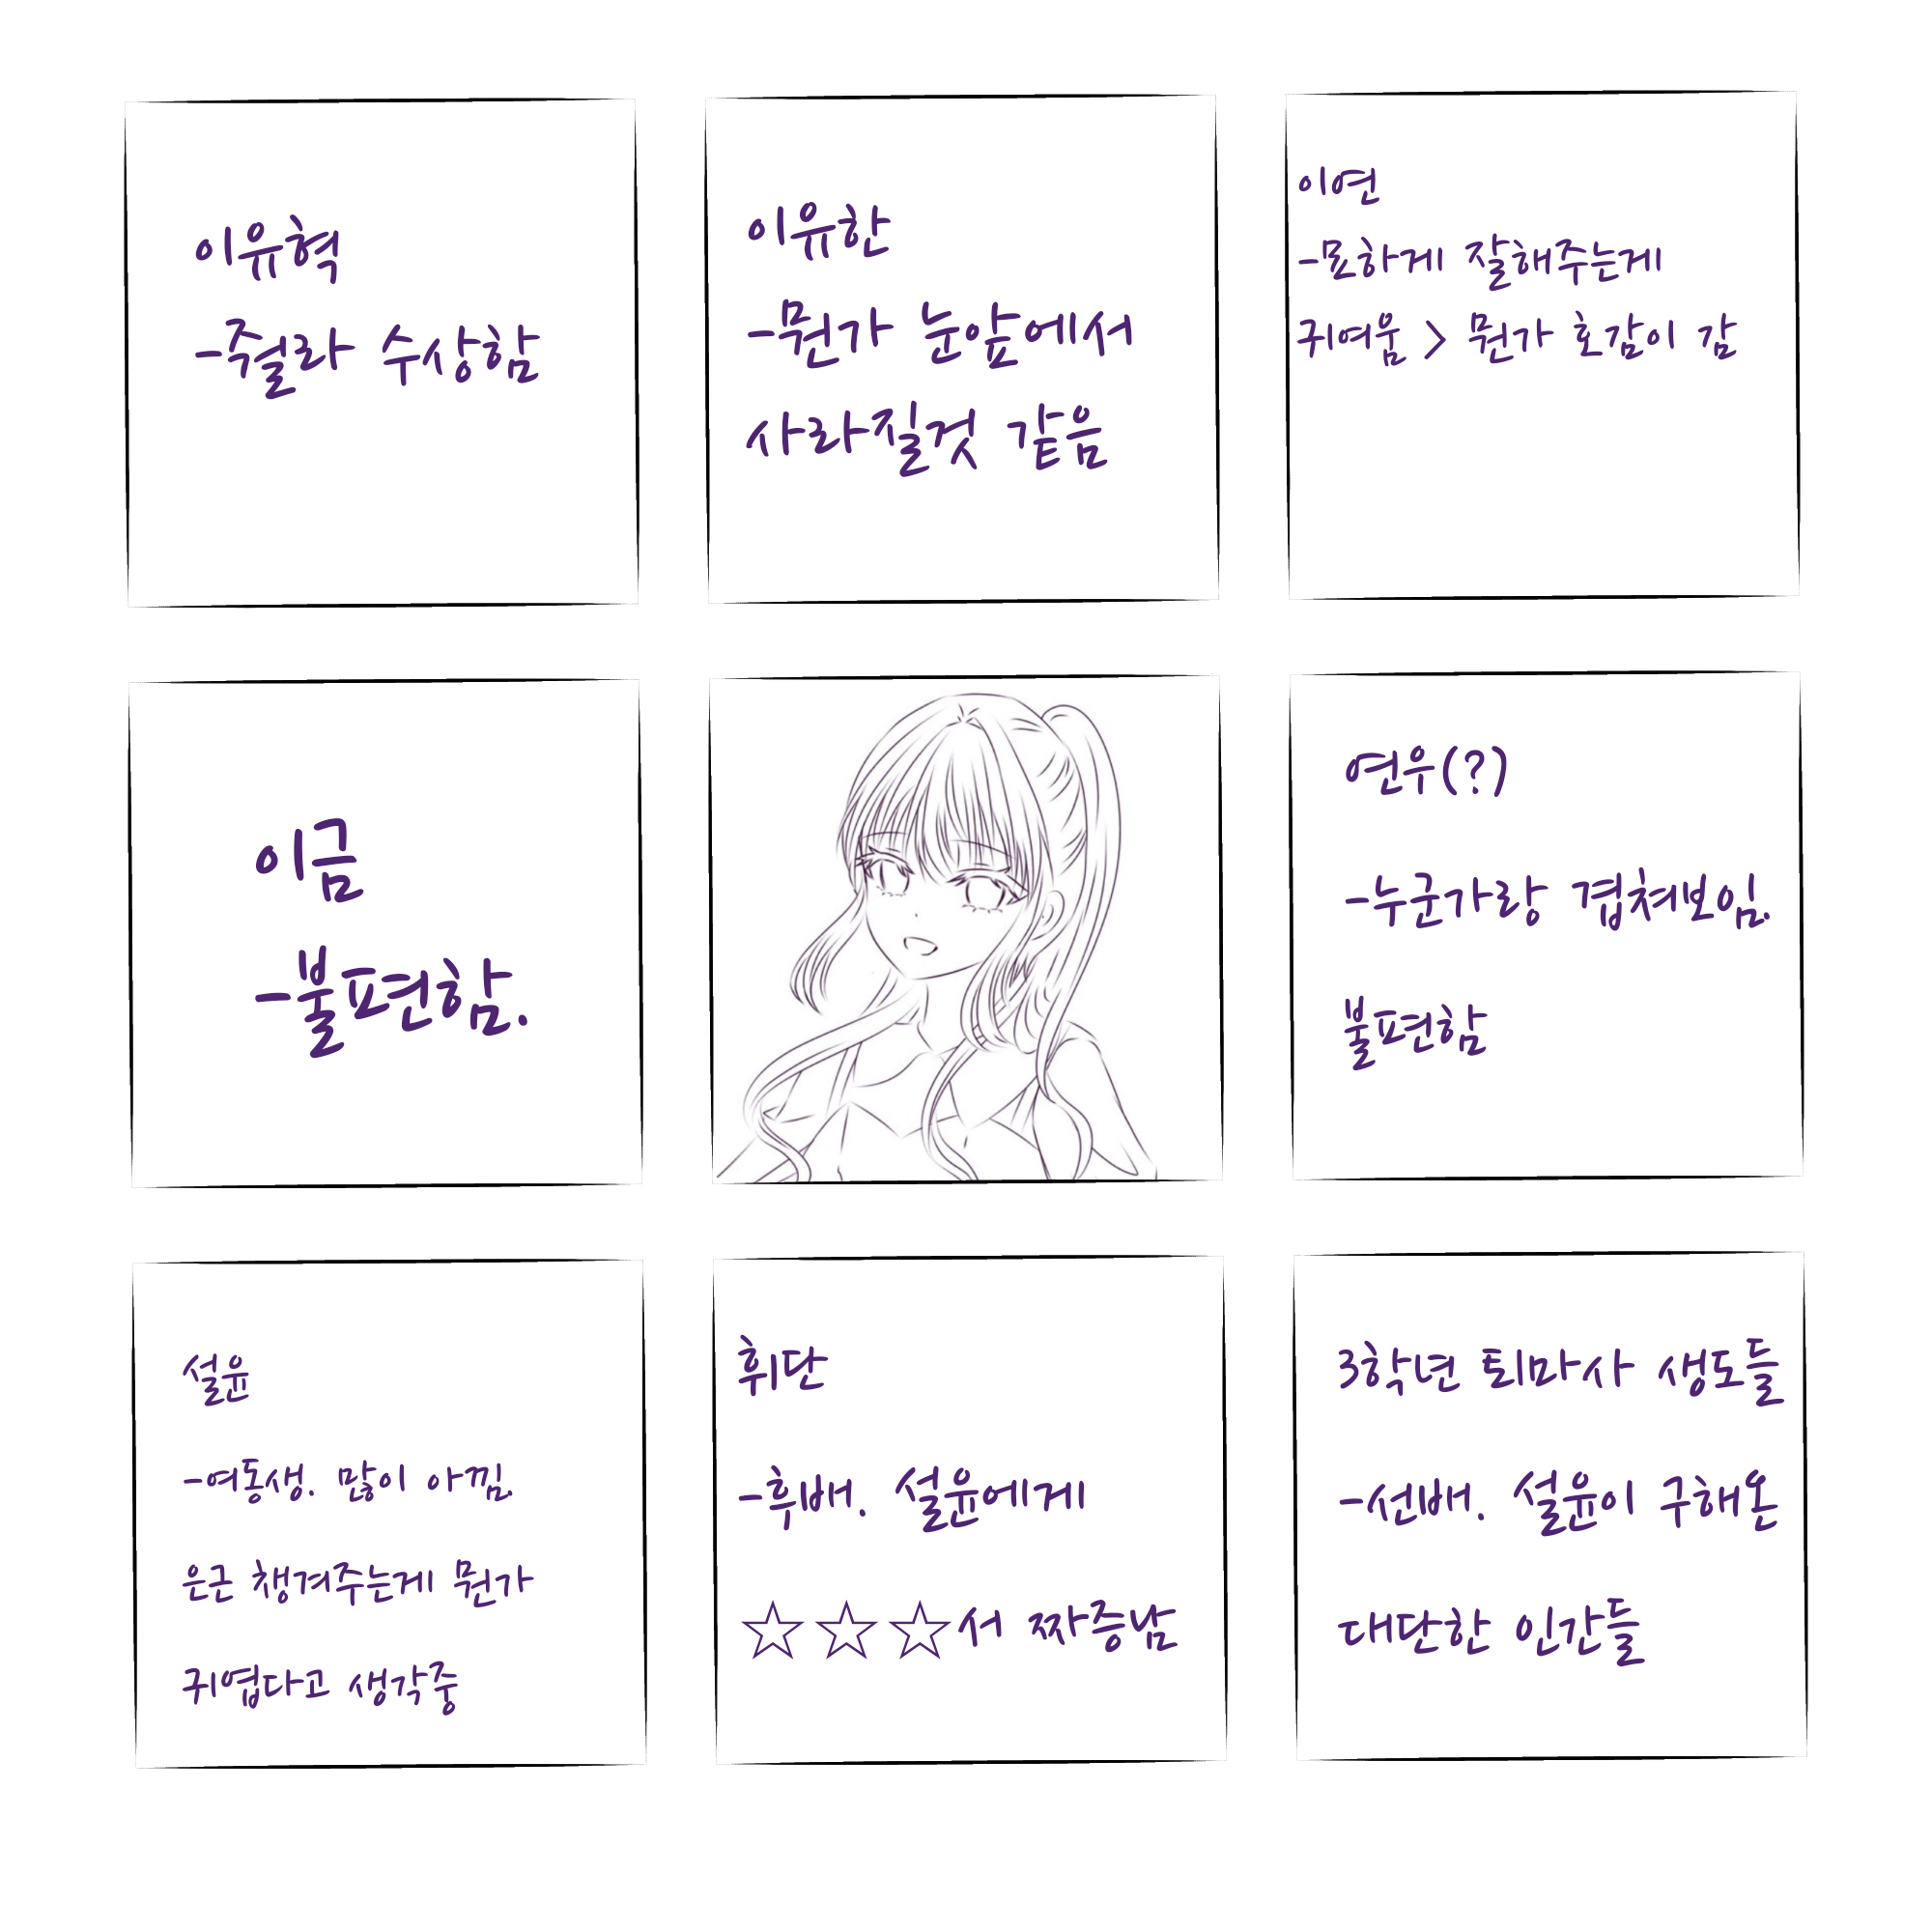 이유혁
-줠라 수상함
이유한
-뭔가 눈앞에서
사라질것 같음
이연
-묘하게 잘해주는게
귀여움 > 뭔가 호감이 감
이금
-불편함.
연우(?)
-누군가랑 겹쳐보임.
불편함
설윤
-여동생. 많이 아낌.
은근 챙겨주는게 뭔가
귀엽다고 생각중
휘단
-후배. 설윤에게
☆☆☆서 짜증남
3학년 퇴마사 생도들
-선배. 설윤이 구해온
대단한 인간들